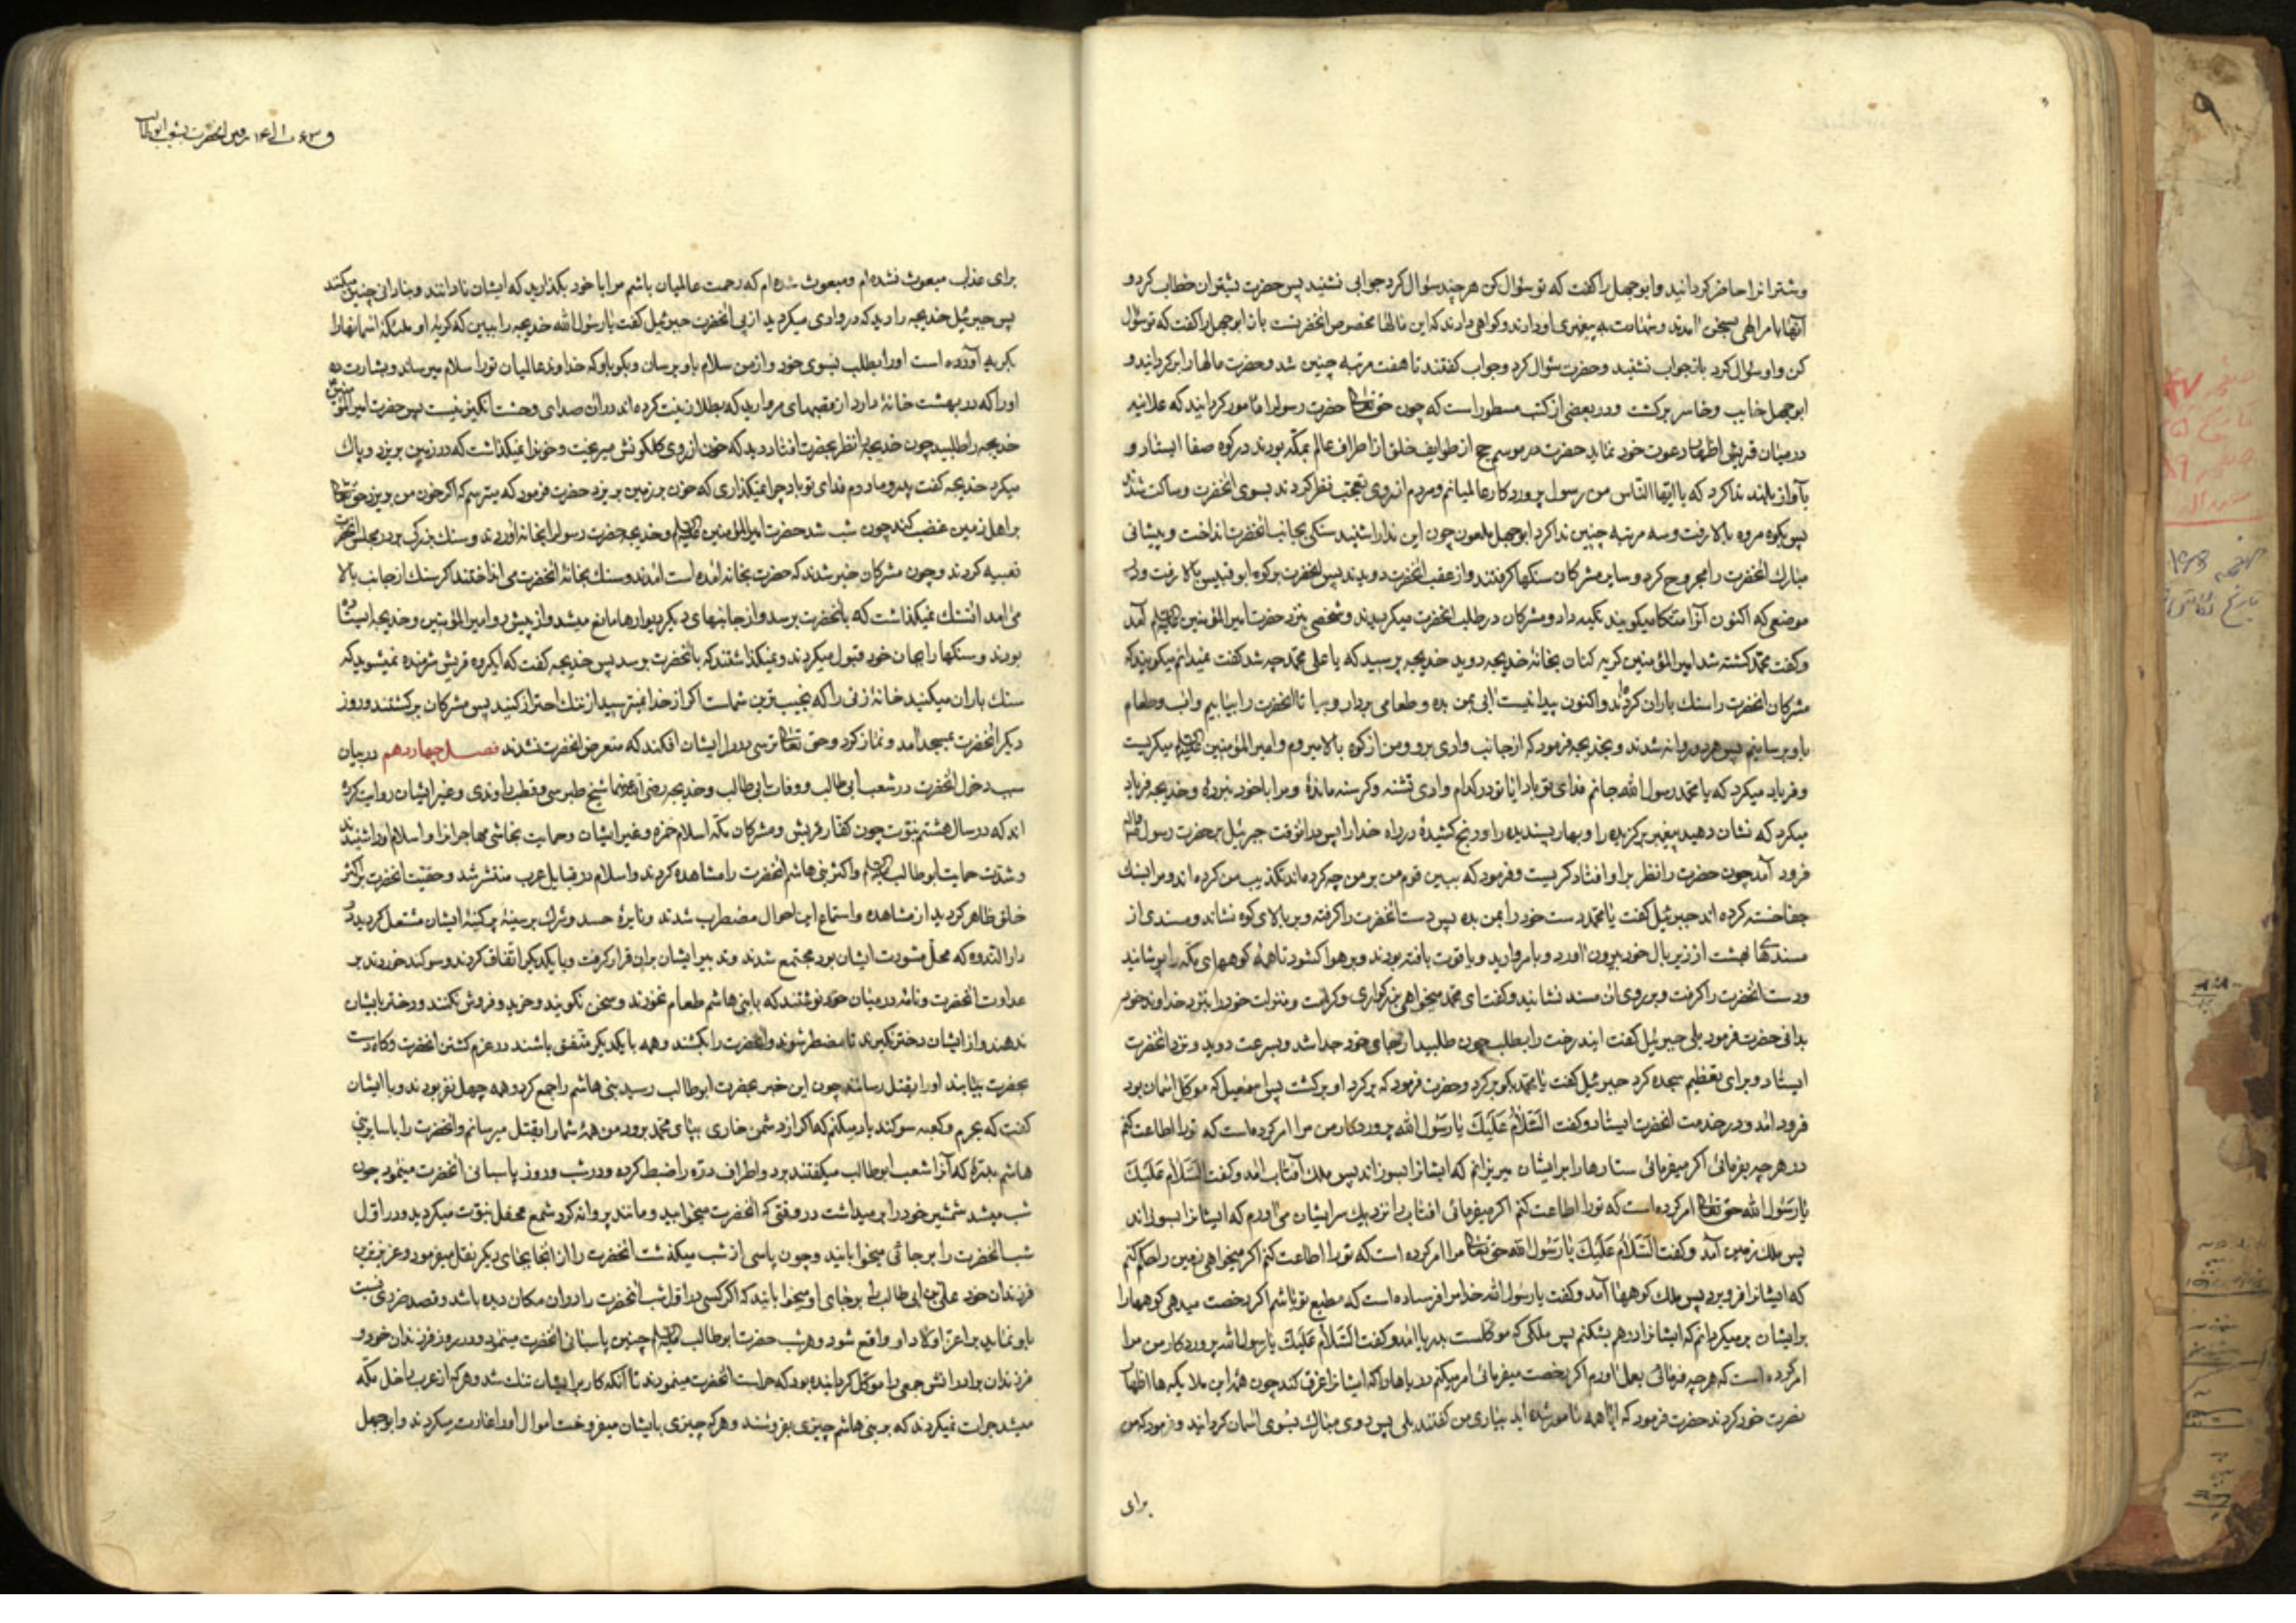 وشترانرا حاضر کردانید وابوجهل را کفت که تو سؤال کن هرچند سؤال کرد جوابی نشنید پس حضرت بشتران خطاب کرد و
آنها بامر الهی بسخن آمدند و شهادت به پیغمبری او دادند وکواهی دادند که این مالها مخصوص انحضرتست باز ابوجهل را کفت که تو سؤال
کن واو سؤال کرد باز جواب نشنید وحضرت سؤال کرد وجواب کفتند تا هفت مرتبه چنین شد وحضرت مالها را بر کردانید و
ابوجهل خایب وخاسر برکشت ودر بعضی از کتب مسطور است که چون حق تعالی حضرت رسول را مامور کردانید که علانیه
در میان قریش اظهار دعوت خود نماید حضرت در موسم حج از طوایف خلق از اطراف عالم بمکه بودند در کوه صفا ایستاد و
بآواز بلند ندا کرد که یا ایها الناس من رسول پروردکار عالمیانم ومردم از روی تعجب نظر کردند بسوی انحضرت وساکت شدند
پس بکوه مروه بالا رفت وسه مرتبه چنین ندا کرد ابوجهل ملعون چون این ندا را شنید سنکی بجانب انحضرت انداخت وپیشانی
مبارک انحضرت را مجروح کرد وسایر مشرکان سنکها کرفتند واز عقب انحضرت دویدند پس انحضرت بر کوه ابوقبیس بالا رفت ودر
موضعی که اکنون آنرا متکا میکویند تکیه داد ومشرکان در طلب انحضرت میکردیدند وشخصی بنزد حضرت امیرالمؤمنین آمد
وکفت محمد کشته شد امیرالمؤمنین کریه کنان بخانهٔ خدیجه دوید خدیجه پرسید که یا علی محمد چه شد کفت نمیدانم میکویند که
مشرکان انحضرت را سنک باران کرده‌اند واکنون پیدا نیست آبی بمن بده وطعامی بردار وبیا تا انحضرت را بیابیم واب وطعام
باو برسانیم پس هر دو روانه شدند وبخدیجه فرمود که از جانب وادی برو ومن از کوه بالا میروم وامیرالمؤمنین میکریست
وفریاد میکرد که یا محمد یا رسول الله جانم فدای تو باد ایا تو در کدام وادی تشنه وکرسنه ماندهٔ ومرا با خود نبردهٔ وخدیجه فریاد
میکرد که نشان دهید پیغمبر برکزیده را وبهار پسندیده را ورنج کشیدهٔ در راه خدا را پس در انوقت جبرئیل بر حضرت رسول
فرود آمد چون حضرت را نظر بر او افتاد کریست وفرمود که ببین قوم من بر من چه کرده‌اند تکذیب من کرده‌اند ومرا بسنک
جفا خسته کرده‌اند جبرئیل کفت یا محمد دست خود را بمن بده پس دست انحضرت را کرفته وبر بالای کوه نشاند ومسندی از
مسندهای بهشت از زیر بال خود بیرون آورد وبا مروارید ویاقوت بافته بودند وبر هوا کشود تا همهٔ کوههای مکه را پوشانید
ودست انحضرت را کرفت وبر روی ان مسند نشانید وکفت ای محمد میخواهی بزرکواری وکرامت ومنزلت خود را بنزد خداوند خود
بدانی حضرت فرمود بلی جبرئیل کفت ایندرخت را بطلب چون طلبید از جای خود جدا شد وبسرعت دوید ونزد انحضرت
ایستاد وبرای تعظیم سجده کرد جبرئیل کفت یا محمد بکو برکرد وحضرت فرمود که برکرد او برکشت پس اسمعیل که موکل اسمان بود
فرود امد ودر خدمت انحضرت ایستاد وکفت السَّلامُ عَلَیْکَ یا رَسُولَ الله پروردکار من مرا امر کرده است که تورا اطاعت کنم
در هر چه بفرمائی اکر میفرمائی ستارها را بر ایشان میریزانم که ایشانرا بسوزاند پس ملک آفتاب امد وکفت السَّلامُ عَلَیْکَ
یا رَسُولَ الله حق تعالی امر کرده است که تورا اطاعت کنم اکر میفرمائی افتاب را نزدیک سر ایشان می‌آورم که ایشانرا بسوزاند
پس ملک زمین آمد وکفت السَّلامُ عَلَیْکَ یا رَسُولَ الله حق تعالی مرا امر کرده است که تورا اطاعت کنم اکر میخواهی زمین را حکم کنم
که ایشانرا فرو برد پس ملک کوهها آمد وکفت یا رسول الله خدا مرا فرستاده است که مطیع تو باشم اکر رخصت میدهی کوهها را
بر ایشان برمیکردانم که ایشانرا در هم بشکنم پس ملکی که موکلست بدریا امد وکفت السَّلامُ عَلَیْکَ یا رسول الله پروردکار من مرا
امر کرده است که هرچه فرمائی بعمل اورم اکر رخصت میفرمائی امر میکنم دریاها را که ایشانرا غرق کند چون همهٔ این ملایکه ها اظهار
نصرت خود کردند حضرت فرمود که ایا همه مامور شده اید بیاری من کفتند بلی پس روی مبارک بسوی اسمان کردانید وفرمود که من
برای
برای عذاب مبعوث نشده‌ام ومبعوث شده‌ام که رحمت عالمیان باشم مرا با خود بکذارید که ایشان نادانند وبنادانی چنین میکنند
پس جبرئیل خدیجه را دید که در وادی میکردید از پی انحضرت جبرئیل کفت یا رسول الله خدیجه را ببین که کریهٔ او ملئکهٔ اسمانها را
بکریه آورده است اورا بطلب بسوی خود واز من سلام باو برسان وبکو باو که خداوند عالمیان تورا سلام میرساند وبشارت ده
اورا که در بهشت خانهٔ دارد از قصبهای مروارید که بطلا زینت کرده‌اند ودر ان صدای وحشت انکیز نیست پس حضرت امیرالمؤمنین
خدیجه را طلبید چون خدیجه را نظر بحضرت افتاد دید که خون از روی کلکونش میریخت وخونرا نمیکذاشت که در زمین بریزد وپاک
میکرد خدیجه کفت پدر ومادرم فدای تو باد چرا نمیکذاری که خون بر زمین بریزد حضرت فرمود که میترسم که اکر خون من بریزد حق تعالی
بر اهل زمین غضب کند چون شب شد حضرت امیرالمؤمنین وخدیجه حضرت رسول را بخانه آوردند وسنک بزرک بر در مجلس انحضرت
تعبیه کردند وچون مشرکان خبر شدند که حضرت بخانه امده است امدند وسنک بخانهٔ انحضرت می انداختند اکر سنک از جانب بالا
می‌امد ان سنک نمیکذاشت که بانحضرت برسد واز جانبهای دیکر دیوارها مانع میشد واز پیش رو امیرالمؤمنین وخدیجه ایستاده
بودند وسنکها را بجان خود قبول میکردند ونمیکذاشتند که بانحضرت برسد پس خدیجه کفت که ایکروه قریش شرمنده نمیشوید که
سنک باران میکنید خانهٔ زنی را که نجیب ترین شماست اکر از خدا نمیترسید از ننک احتراز کنید پس مشرکان برکشتند وروز
دیکر انحضرت بمسجد آمد ونماز کرد وحق تعالی ترسی در دل ایشان افکند که متعرض انحضرت نشدند فصل چهاردهم در بیان
سبب دخول انحضرت در شعب ابی طالب ووفات ابی طالب وخدیجه رضی الله عنهما شیخ طبرسی وقطب راوندی وغیر ایشان روایت کرده
اند که در سال هشتم نبوت چون کفار قریش ومشرکان مکه اسلام حمزه وغیر ایشان وحمایت نجاشی مهاجرانرا واسلام اورا شنیدند
وشدت حمایت ابوطالب واکثر بنی هاشم انحضرت را مشاهده کردند واسلام در قبایل عرب منتشر شد وحقیت انحضرت بر اکثر
خلق ظاهر کردید از مشاهده واستماع این احوال مضطرب شدند ونایرهٔ حسد وشرک بر سینهٔ پر کینهٔ ایشان مشتعل کردید در
دار الندوه که محل مشورت ایشان بود مجتمع شدند وتدبیر ایشان بران قرار کرفت وبا یکدیکر اتفاق کردند وسوکند خوردند بر
عداوت انحضرت ونامه در میان خود نوشتند که با بنی هاشم طعام نخورند وسخن نکویند وخرید وفروش نکنند ودختر بایشان
ندهند واز ایشان دختر نکیرند تا مضطر شوند وانحضرت را بکشند وهمه با یکدیکر متفق باشند در عزم کشتن انحضرت وکاه دست
بحضرت بیابند اورا بقتل رسانند چون این خبر بحضرت ابوطالب رسید بنی هاشم را جمع کرد وهمه چهل نفر بودند وبا ایشان
کفت که بحرم وکعبه سوکند یاد میکنم که اکر از دشمن خاری بپای محمد برود من همهٔ شما را بقتل میرسانم وانحضرت را با سایر بنی
هاشم بدرهٔ که آنرا شعب ابوطالب میکفتند برد واطراف دره را ضبط کرده ودر شب وروز پاسبانی انحضرت مینمود چون
شب میشد شمشیر خود را برمیداشت در وقتی که انحضرت میخوابید ومانند پروانه کرد شمع محفل نبوت میکردید ودر اول
شب انحضرت را بر جائی میخوابانید وچون پاسی از شب میکذشت انحضرت را از انجا بجای دیکر نقل میفرمود وعزیزترین
فرزندان خود علی بن ابی طالب را بر جای او میخوابانید که اکر کسی در اول شب انحضرت را در ان مکان دیده باشد وقصد ضرری نسبت
باو نماید بر اعز اولاد او واقع شود وهر شب حضرت ابوطالب چنین پاسبانی انحضرت مینمود ودر روز فرزندان خود و
فرزندان برادرانش جمعی را موکل کردانیده بود که حراست انحضرت مینمودند تا آنکه کار بر ایشان تنک شد وهر که از عرب داخل مکه
میشد جرات نمیکردند که به بنی هاشم چیزی بفروشند وهر که چیزی بایشان میفروخت اموال اورا غارت میکردند وابوجهل